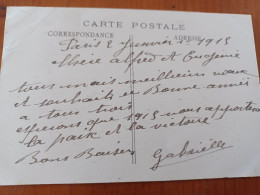 CARTE POSTALE
CORRESPONDANCE ADRESSE
Paris 2 janvier 1915
Chère alfred et Eugenie
tous mes meilleurs vœux
et souhaits de Bonne année
a tous trois
esperons que 1915 nous apportera
la paix et la victoire
Bons Baisers Gabrielle